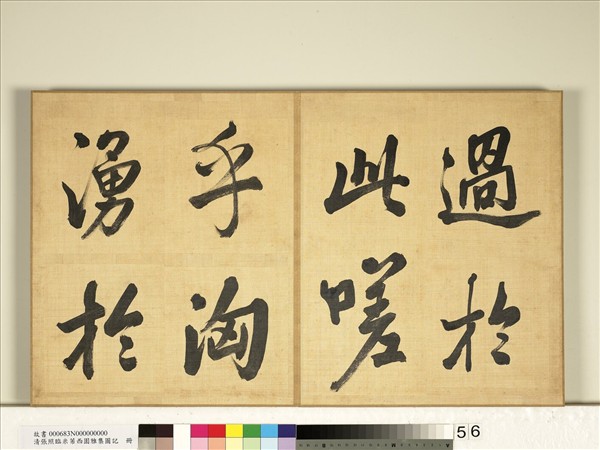 過於
此嗟
乎洶
湧於
故書 000683N000000000
清張照臨米芾西園雅集圖記 冊
56